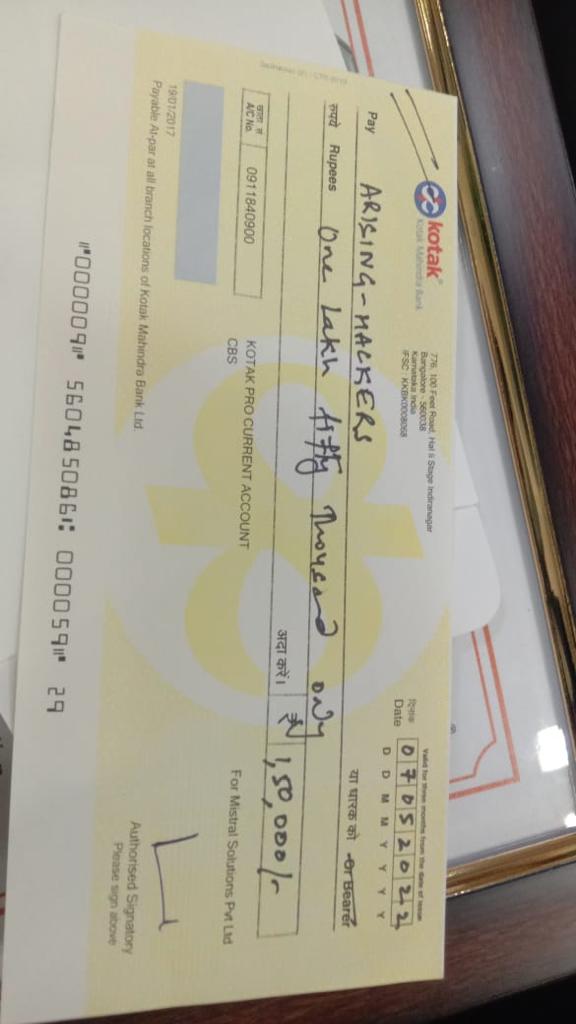 kotak
Kotak Mahindra Bank
776, 100 Feet Road, Hal II Stage Indiranagar
Bangalore - 560038
Karnataka India
IFSC : KKBK0008068
Valid for three months from the date of issue
दिनांक
Date 07052022
D D M M Y Y Y Y
Pay ARISING-HACKERS या धारक को Or Bearer
रुपये Rupees One Lakh fifty Thousand only
अदा करें। ₹ 1,50,000/-
खाता सं
A/C No. 0911840900
KOTAK PRO CURRENT ACCOUNT
CBS
For Mistral Solutions Pvt Ltd
19/01/2017
Payable At-par at all branch locations of Kotak Mahindra Bank Ltd.
Authorised Signatory
Please sign above
⑈000009⑈ 560485086⑆ 000059⑈ 29